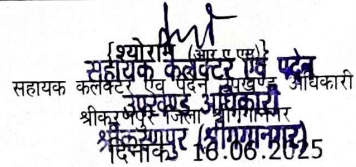 {श्योराम (आर ए एस)}
सहायक कलेक्टर एवं पदेन
सहायक कलेक्टर एवं पदेन उपखण्ड अधिकारी
उपखण्ड अधिकारी
श्रीकरणपुर जिला श्रीगंगानगर
श्रीकरणपुर (श्रीगंगानगर)
दिनांक 16.06.2025